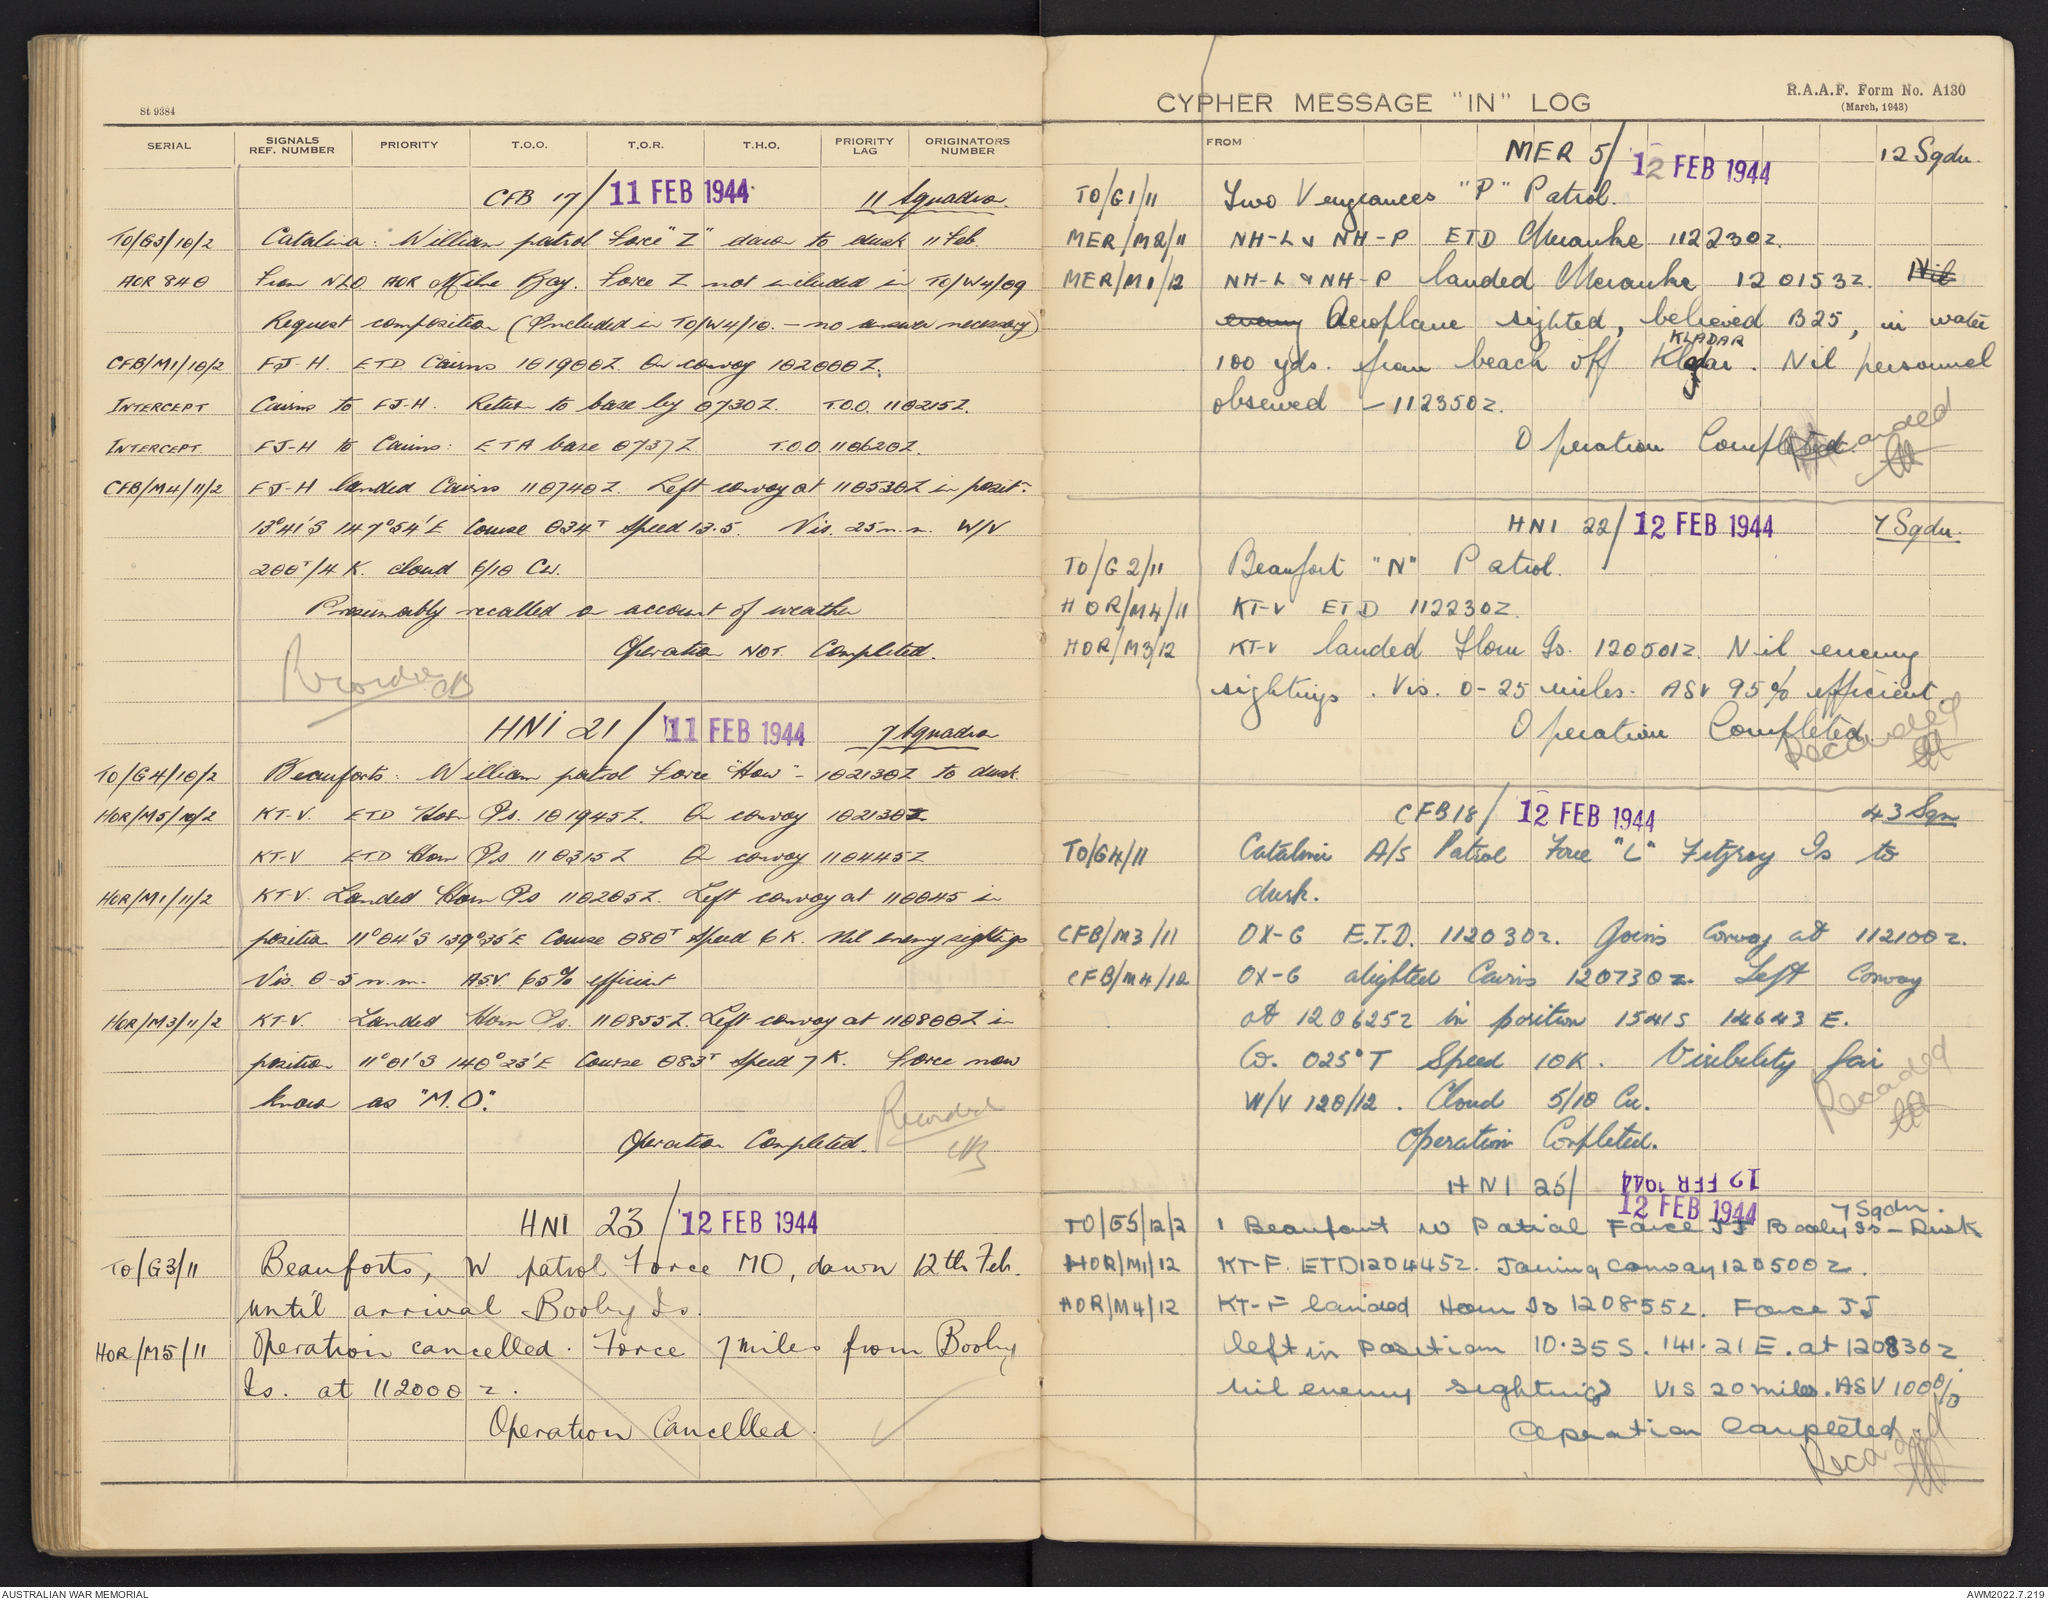 St 9384
SERIAL SIGNALS REF. NUMBER PRIORITY T.O.O. T.O.R. T.H.O. PRIORITY LAG ORIGINATORS NUMBER
CFB 17/ 11 FEB 1944 11 Squadron.
TO/G3/10/2 Catalina: William patrol Force "Z" dawn to dusk 11 Feb.
AOR 840 From NLO AOR Milne Bay. Force Z not included in TO/W4/09
Request composition (Included in TO/W4/10. – no answer necessary)
CFB/M1/10/2 FJ-H. ETD. Cairns 101900Z. On convoy 102000Z.
INTERCEPT Cairns to FJ-H. Return to base by 0730Z. T.O.O. 110215Z.
INTERCEPT. FJ-H to Cairns: ETA base 0737Z T.O.O. 110620Z.
CFB/M4/11/2 FJ-H landed Cairns 110740Z. Left convoy at 110530Z in posit:
13°41'S 147°54'E Course 034T Speed 13.5. Vis. 25 n.m. W/V
200T/4 K. cloud 6/10 Cu.
Presumably recalled on account of weather
Operation NOT Completed.
Recorded CB
HNI 21/ 11 FEB 1944 7 Squadron
TO/G4/10/2 Beauforts: William patrol Force "How" – 102130Z to dusk
HOR/M5/10/2 KT-V. ETD Horn Is. 101945Z. On convoy 102130Z
KT-V ETD Horn Is 110315Z On convoy 110445Z
HOR/M1/11/2 KT-V. Landed Horn Is 110205Z. Left convoy at 110045 in
position 11°04'S 139°35'E Course 080T Speed 6 K. Nil enemy sightings
Vis. 0-5 n.m. ASV. 65% efficient
HOR/M3/11/2 KT-V. Landed Horn Is. 110855Z. Left convoy at 110800Z in
position 11°01'S 140°23'E Course 083T Speed 7 K. Force now
known as "M.O".
Operation Completed.
Recorded CB
HNI 23/ 12 FEB 1944
TO/G3/11 Beauforts, W patrol Force MO, dawn 12th Feb.
until arrival Booby Is.
HOR/M5/11 Operation cancelled. Force 7 miles from Booby
Is. at 112000z.
Operation Cancelled.
CYPHER MESSAGE "IN" LOG
R.A.A.F. Form No. A130
(March, 1943)
FROM
MER 5/ 12 FEB 1944 12 Sqdn.
TO/G1/11 Two Vengeances "P" Patrol.
MER/M2/11 NH-L & NH-P ETD Merauke 112230z.
MER/M1/12 NH-L & NH-P landed Merauke 120153z. Nil
enemy Aeroplane sighted, believed B25, in water
KLADAR
100 yds. from beach off Kladar. Nil personnel
observed – 112350z.
Operation Completed.
Recorded
HNI 22/ 12 FEB 1944 7 Sqdn.
TO/G2/11 Beaufort "N" Patrol.
HOR/M4/11 KT-V ETD 112230z.
HOR/M3/12 KT-V landed Horn Is. 120501z. Nil enemy
sightings. Vis. 0-25 miles. ASV 95% efficient.
Operation Completed.
Recorded
CFB 18/ 12 FEB 1944 43 Sqn
TO/G4/11 Catalina A/S Patrol Force "L" Fitzroy Is to
dusk.
CFB/M3/11 OX-G E.T.D. 112030z. Joins Convoy at 112100z.
CFB/M4/12 OX-G alighted Cairns 120730z. Left Convoy
at 120625z in position 1541S 14643 E.
Co. 025°T Speed 10K. Visibility fair
W/V 120/12. Cloud 5/10 Cu.
Operation Completed.
Recorded
HNI 25/ 12 FEB 1944
12 FEB 1944 7 Sqdn.
TO/G5/12/2 1 Beaufort W Patrol Force JJ Booby Is – Dusk
HOR/M1/12 KT-F. ETD 120445z. Joining convoy 120500z.
HOR/M4/12 KT-F landed Horn Is 120855z. Force JJ
left in position 10.35 S. 141.21 E. at 120830z
nil enemy sightings Vis 20 miles. ASV 100%
Operation Completed.
Recorded
AUSTRALIAN WAR MEMORIAL
AWM2022.7.219